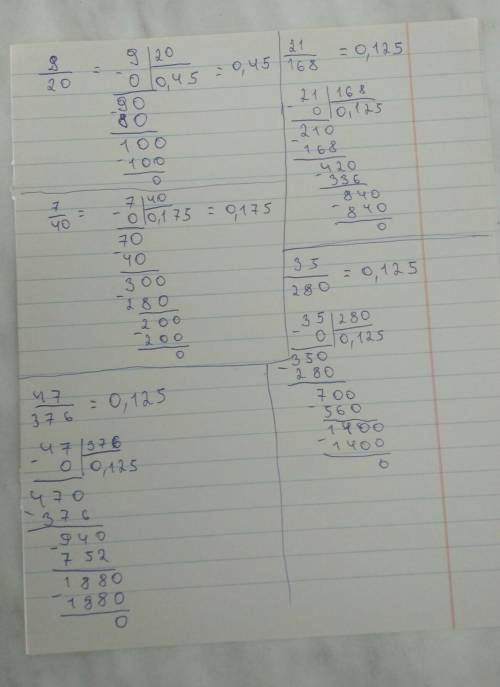 9/20 = 9 | 20 = 0,45
- 0 | 0,45
90
- 80
100
- 100
0
7/40 = 7 | 40 = 0,175
- 0 | 0,175
70
- 40
300
- 280
200
- 200
0
47/376 = 0,125
47 | 376
- 0 | 0,125
470
- 376
940
- 752
1880
- 1880
0
21/168 = 0,125
21 | 168
- 0 | 0,125
210
- 168
420
- 336
840
- 840
0
35/280 = 0,125
35 | 280
- 0 | 0,125
350
- 280
700
- 560
1400
- 1400
0